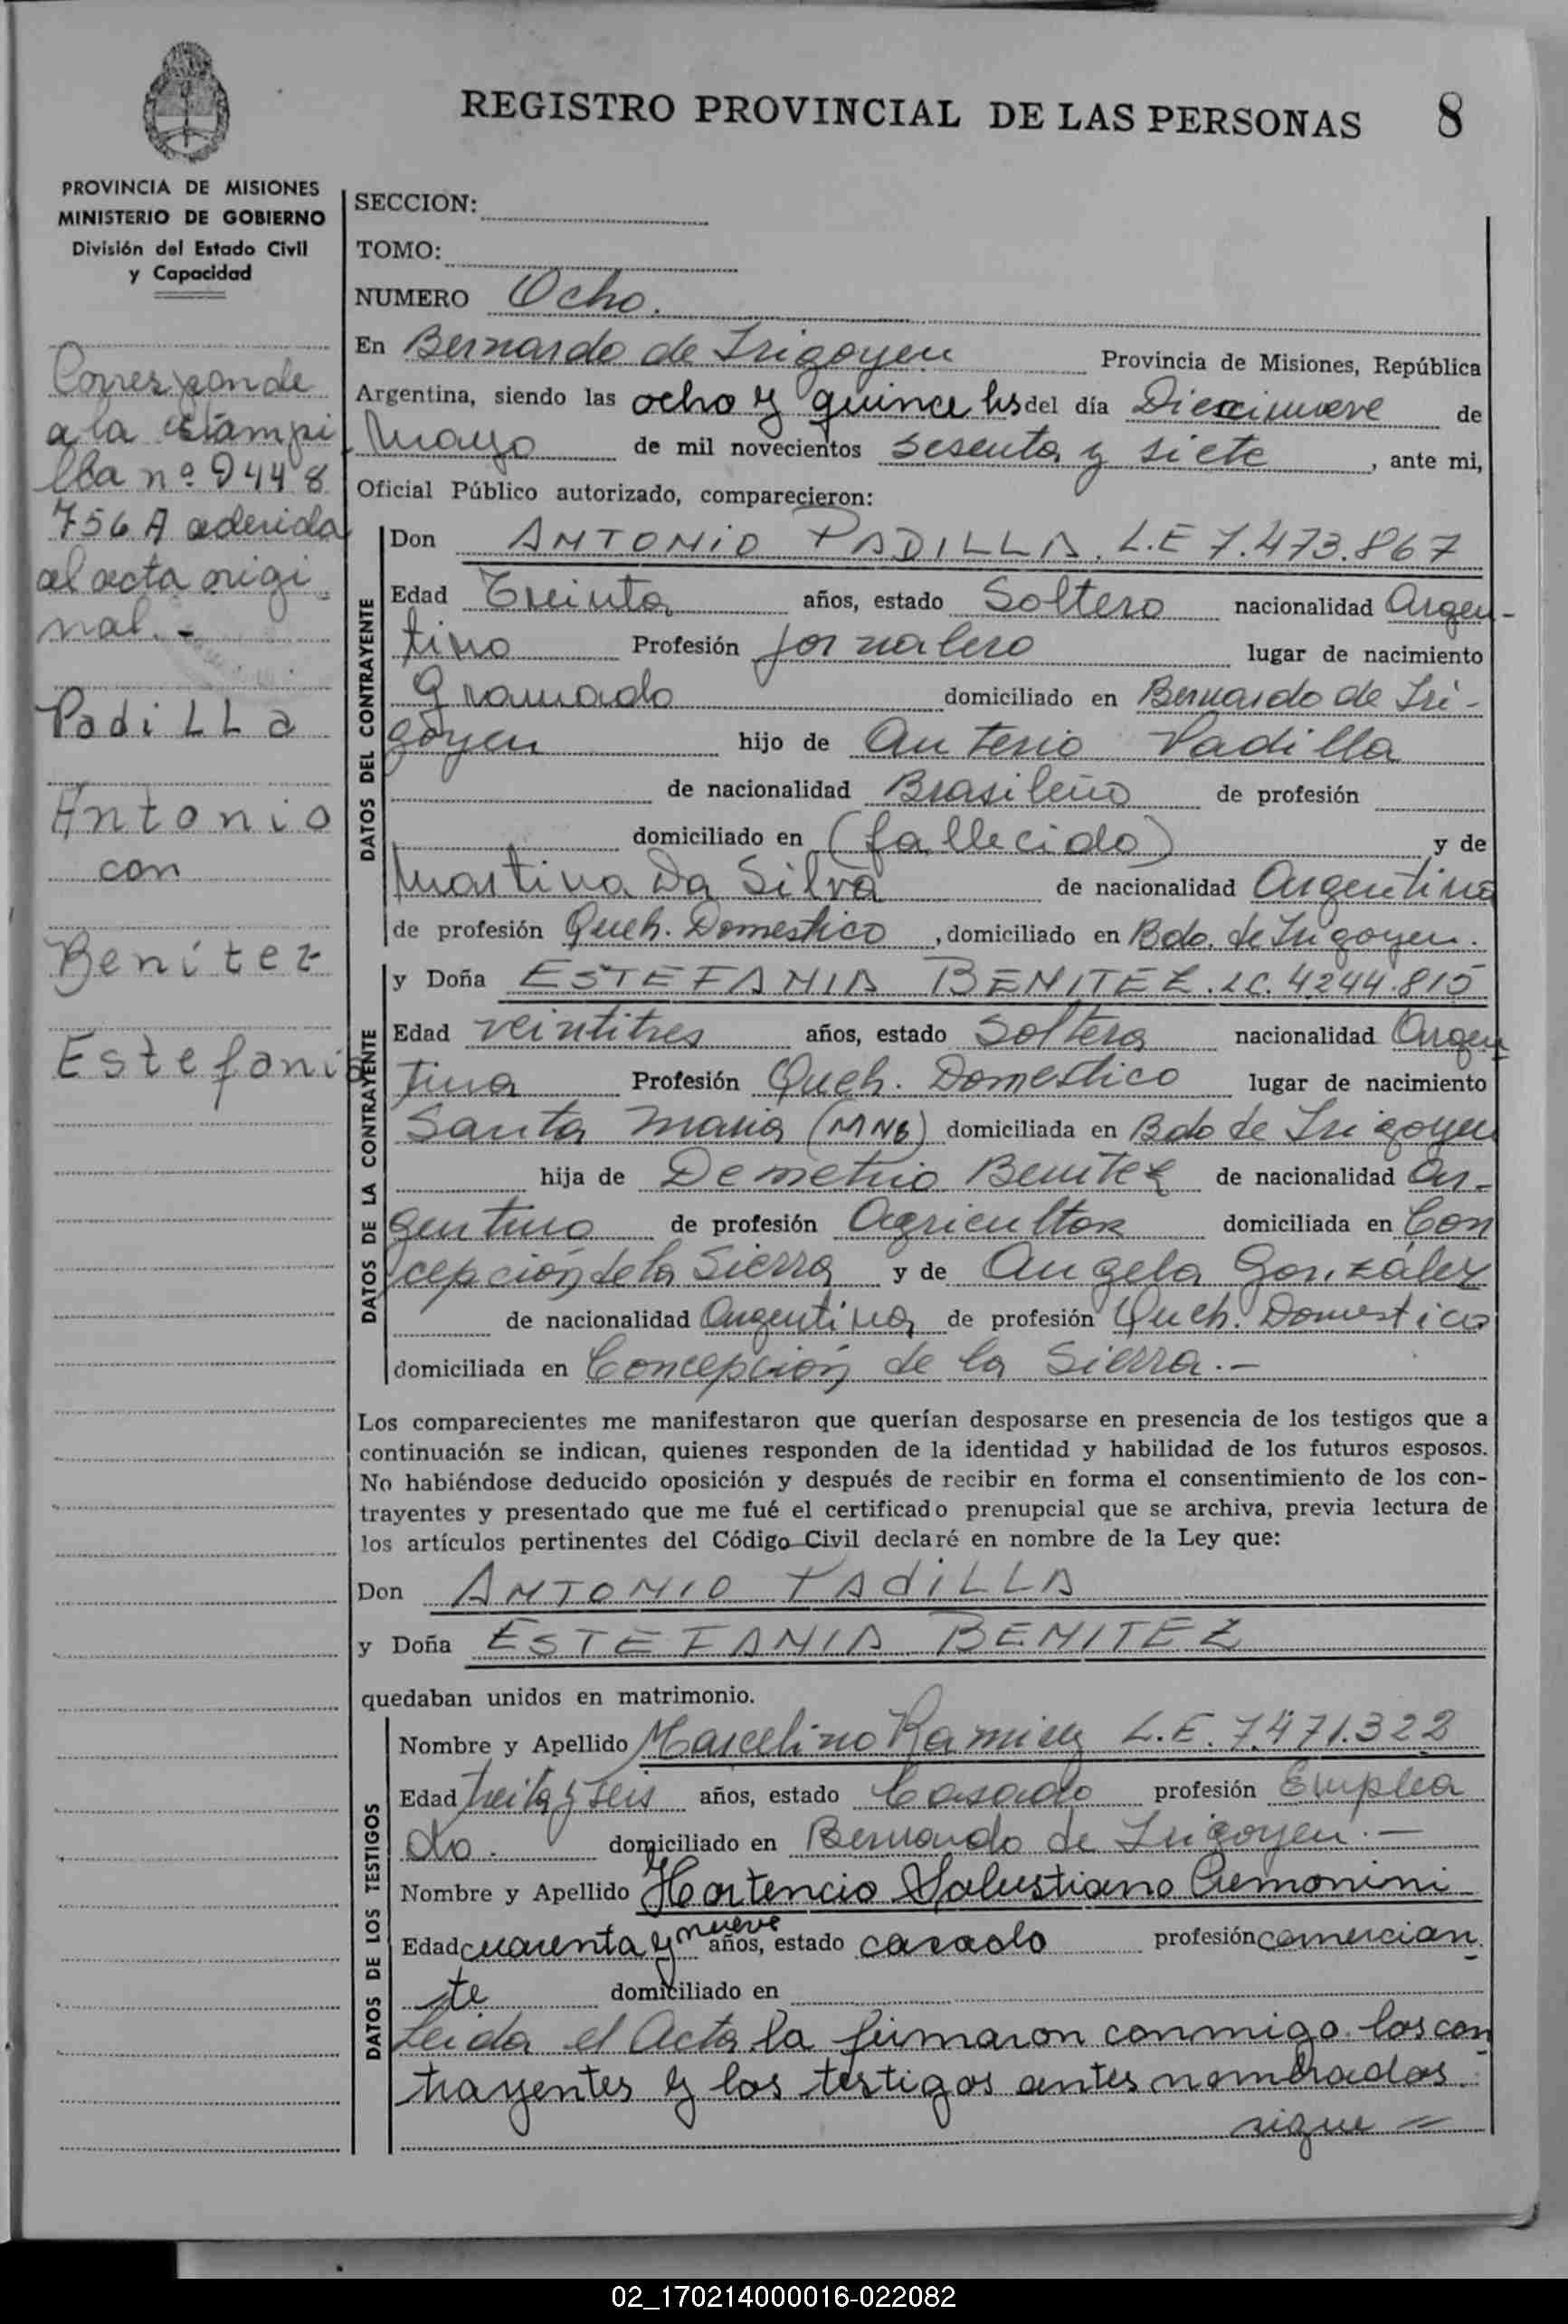 REGISTRO PROVINCIAL DE LAS PERSONAS 8
PROVINCIA DE MISIONES
MINISTERIO DE GOBIERNO
División del Estado Civil
y Capacidad
Corresponde
a la estampi
lla nº 9448
756 A aderida
al acta origi
nal.-
Padilla
Antonio
con
Benitez
Estefania
SECCION:
TOMO:
NUMERO Ocho.
En Bernardo de Irigoyen Provincia de Misiones, República
Argentina, siendo las ocho y quince hs del día Diecinueve de
Mayo de mil novecientos sesenta y siete, ante mi,
Oficial Público autorizado, comparecieron:
DATOS DEL CONTRAYENTE
Don ANTONIO PADILLA. L.E 7.473.867
Edad Treinta años, estado Soltero nacionalidad Argen-
tino Profesión jornalero lugar de nacimiento
Gramado domiciliado en Bernardo de Iri-
goyen hijo de Antenio Padilla
de nacionalidad Brasileño de profesión
domiciliado en (fallecido) y de
Martina Da Silva de nacionalidad Argentina
de profesión Queh. Domestico, domiciliado en Bdo. de Irigoyen.
DATOS DE LA CONTRAYENTE
y Doña ESTEFANIA BENITEZ. LC. 4244.815
Edad veintitres años, estado Soltera nacionalidad Argen
tina Profesión Queh. Domestico lugar de nacimiento
Santa Maria (MNS) domiciliada en Bdo de Irigoyen
hija de Demetrio Benitez de nacionalidad Ar-
gentino de profesión Agricultor domiciliada en Con
cepción de la Sierra y de Angela González
de nacionalidad Argentina de profesión Queh. Domestico
domiciliada en Concepción de la Sierra.-
Los comparecientes me manifestaron que querían desposarse en presencia de los testigos que a
continuación se indican, quienes responden de la identidad y habilidad de los futuros esposos.
No habiéndose deducido oposición y después de recibir en forma el consentimiento de los con-
trayentes y presentado que me fué el certificado prenupcial que se archiva, previa lectura de
los artículos pertinentes del Código Civil declaré en nombre de la Ley que:
Don ANTONIO PADiLLA
y Doña ESTEFANIA BENITEZ
quedaban unidos en matrimonio.
DATOS DE LOS TESTIGOS
Nombre y Apellido Marcelino Ramirez L.E. 7.471.322
Edad treita y seis años, estado Casado profesión Emplea
do. domiciliado en Bernardo de Irigoyen.-
Nombre y Apellido Hortencio Salustiano Cremonini
Edad cuarenta y nueve años, estado casado profesión comercian
te domiciliado en
Leida el Acta la firmaron conmigo los con
trayentes y los testigos antes nombrados.
sigue =
02_170214000016-022082